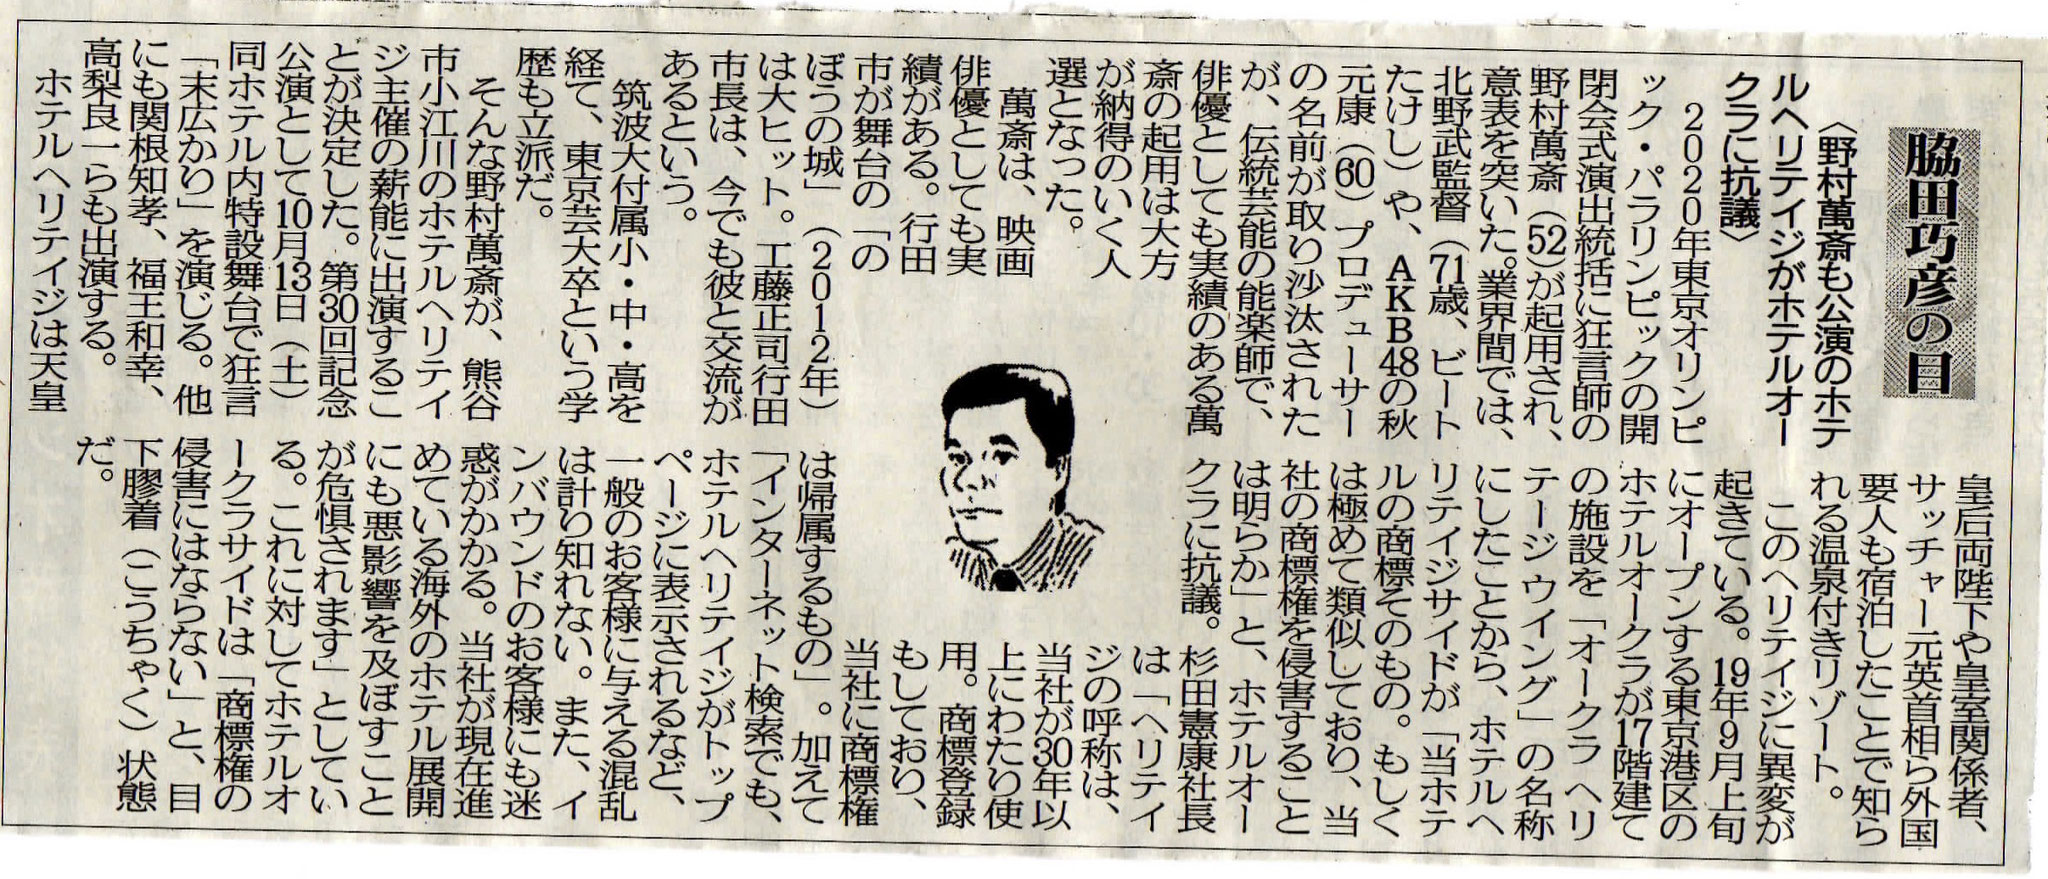 脇田巧彦の目
〈野村萬斎も公演のホテ
ルヘリテイジがホテルオー
クラに抗議〉
２０２０年東京オリンピ
ック・パラリンピックの開
閉会式演出統括に狂言師の
野村萬斎（52）が起用され、
意表を突いた。業界間では、
北野武監督（71歳、ビート
たけし）や、ＡＫＢ48の秋
元康（60）プロデューサー
の名前が取り沙汰された
が、伝統芸能の能楽師で、
俳優としても実績のある萬
斎の起用は大方
が納得のいく人
選となった。
萬斎は、映画
俳優としても実
績がある。行田
市が舞台の「の
ぼうの城」（２０１２年）
は大ヒット。工藤正司行田
市長は、今でも彼と交流が
あるという。
筑波大付属小・中・高を
経て、東京芸大卒という学
歴も立派だ。
そんな野村萬斎が、熊谷
市小江川のホテルヘリテイ
ジ主催の薪能に出演するこ
とが決定した。第30回記念
公演として10月13日（土）
同ホテル内特設舞台で狂言
「末広かり」を演じる。他
にも関根知孝、福王和幸、
高梨良一らも出演する。
ホテルヘリテイジは天皇
皇后両陛下や皇室関係者、
サッチャー元英首相ら外国
要人も宿泊したことで知ら
れる温泉付きリゾート。
このヘリテイジに異変が
起きている。19年９月上旬
にオープンする東京港区の
ホテルオークラが17階建て
の施設を「オークラ ヘリ
テージ ウイング」の名称
にしたことから、ホテルヘ
リテイジサイドが「当ホテ
ルの商標そのもの。もしく
は極めて類似しており、当
社の商標権を侵害すること
は明らか」と、ホテルオー
クラに抗議。
杉田憲康社長
は「ヘリテイ
ジの呼称は、
当社が30年以
上にわたり使
用。商標登録
もしており、
当社に商標権
は帰属するもの」。加えて
「インターネット検索でも、
ホテルヘリテイジがトップ
ページに表示されるなど、
一般のお客様に与える混乱
は計り知れない。また、イ
ンバウンドのお客様にも迷
惑がかかる。当社が現在進
めている海外のホテル展開
にも悪影響を及ぼすこと
が危惧されます」としてい
る。これに対してホテルオ
ークラサイドは「商標権の
侵害にはならない」と、目
下膠着（こうちゃく）状態
だ。